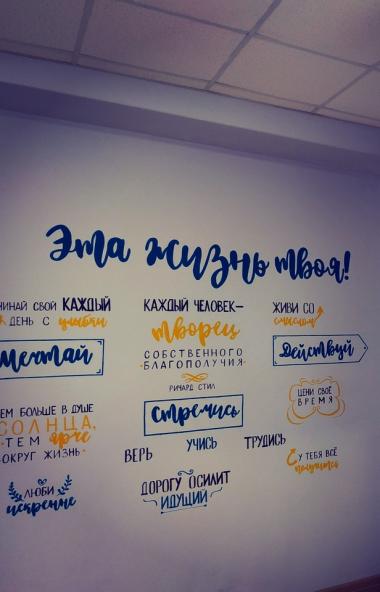 Эта жизнь твоя!
ЧИНАЙ СВОЙ КАЖДЫЙ
ДЕНЬ С улыбки
Мечтай
ЕМ БОЛЬШЕ В ДУШЕ
СОЛНЦА,
ТЕМ ярче
ОКРУГ ЖИЗНЬ
ЛЮБИ
искренне
КАЖДЫЙ ЧЕЛОВЕК–
творец
СОБСТВЕННОГО
БЛАГОПОЛУЧИЯ
РИЧАРД СТИЛ
Стремись
ВЕРЬ УЧИСЬ ТРУДИСЬ
ДОРОГУ ОСИЛИТ
ИДУЩИЙ
ЖИВИ СО
смыслом
Действуй
ЦЕНИ СВОЁ
ВРЕМЯ
У ТЕБЯ ВСЁ
получится